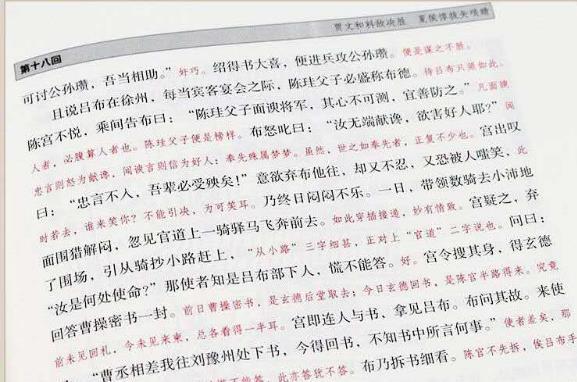 贾文和料敌决胜 夏侯惇拔矢啖睛
第十八回
可讨公孙瓒，吾当相助。”好巧。绍得书大喜，便进兵攻公孙瓒。便是谋之不胜。
且说吕布在徐州，每当宾客宴会之际，陈珪父子必盛称布德。待吕布只须如此。
陈宫不悦，乘间告布曰：“陈珪父子面谀将军，其心不可测，宜善防之。”凡面谀
人者，必腹算人者也。陈珪父子便是榜样。布怒叱曰：“汝无端献谗，欲害好人耶？”闻
忠言则怒为献谗，闻谀言则信为好人：奉先殊属梦梦。虽然，世之如奉先者，正复不少也。宫出叹
曰：“忠言不入，吾辈必受殃矣！”意欲弃布他往，却又不忍，又恐被人嗤笑，此
时若去，谁来笑你？不能引决，为可笑耳。乃终日闷闷不乐。一日，带领数骑去小沛地
面围猎解闷，忽见官道上一骑驿马飞奔前去。如此穿插接递，妙有情致。宫疑之，弃
了围场，引从骑抄小路赶上，“从小路”三字细甚，正对上“官道”二字说也。问曰：
“汝是何处使命？”那使者知是吕布部下人，慌不能答。好。宫令搜其身，得玄德
回答曹操密书一封。前日曹操密书，是玄德后堂取去；今日玄德回书，是陈宫半路得来。究竟
前未见回札，今未见来柬，总各看得一半耳。宫即连人与书，拿见吕布。布问其故。来使
曰：“曹丞相差我往刘豫州处下书，今得回书，不知书中所言何事。”使者差矣，那
不能答。此亦答犹不答。布乃拆书细看。陈宫不先拆，俟吕布手